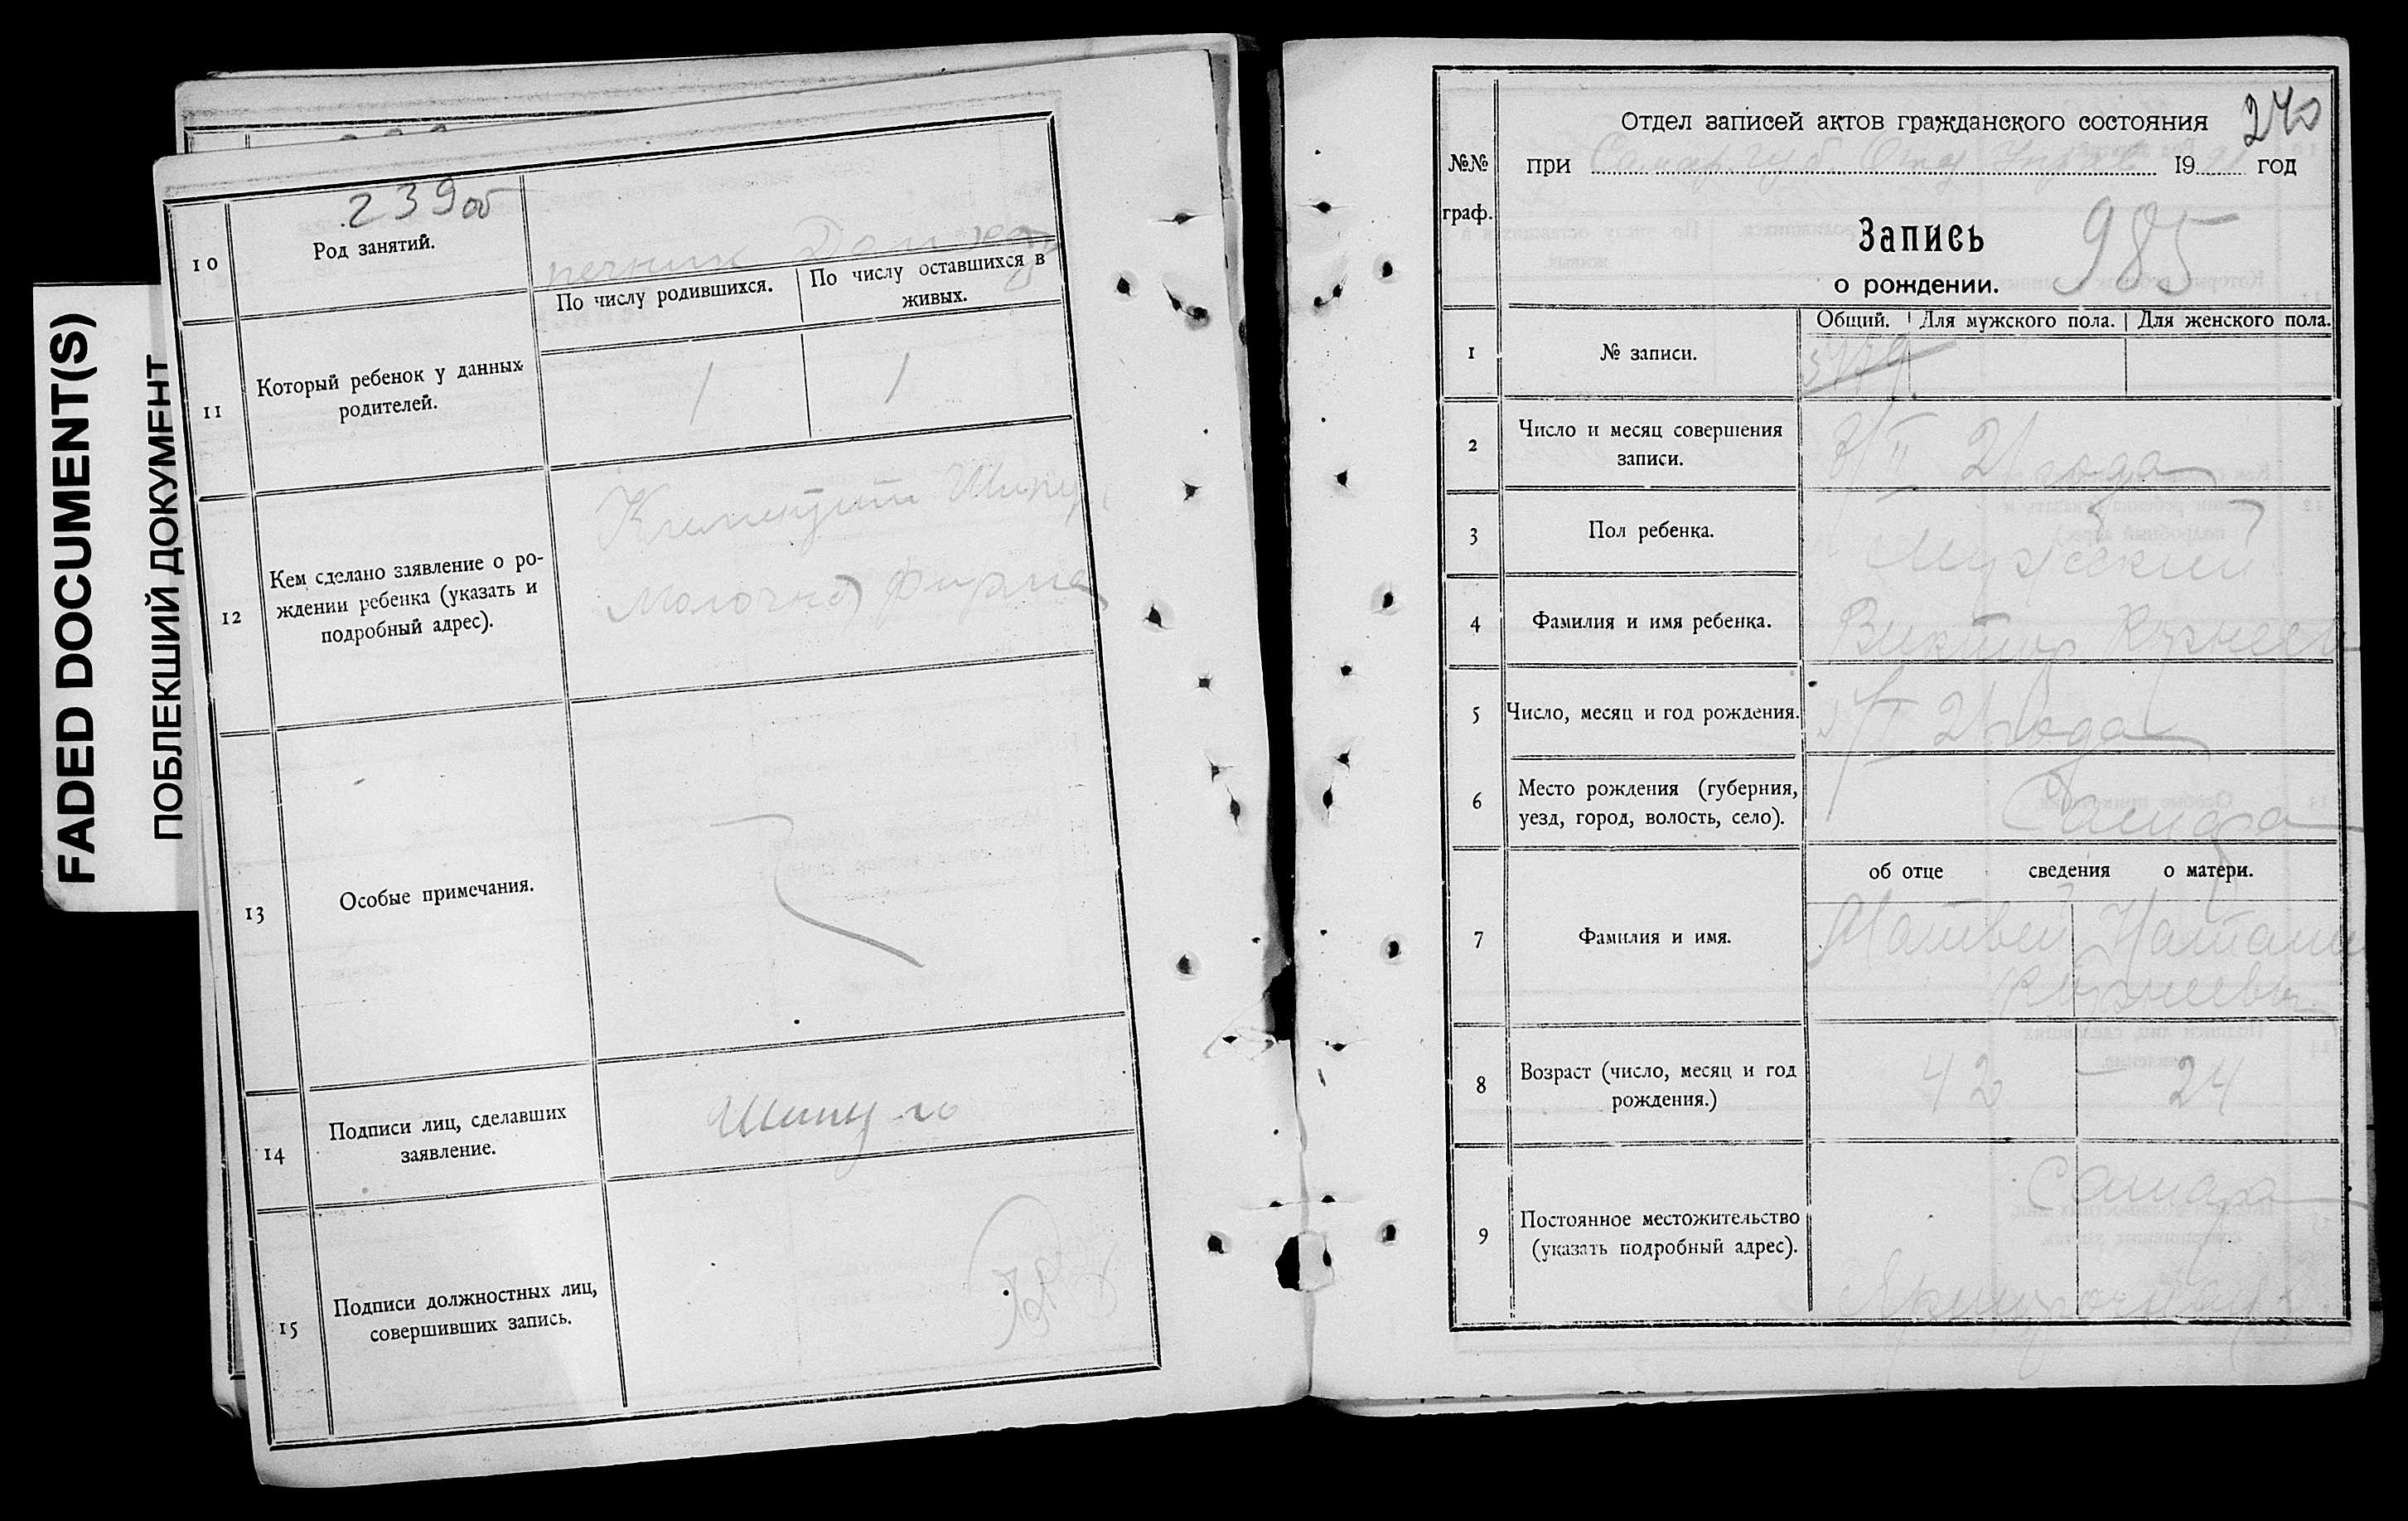 FADED DOCUMENT(S)
ПОБЛЕКШИЙ ДОКУМЕНТ
239об
10
Род занятий.
печник
По числу родившихся.
По числу оставшихся в
живых.
11
Который ребенок у данных
родителей.
1
1
12
Кем сделано заявление о ро-
ждении ребенка (указать и
подробный адрес).
Молочная ферма
13
Особые примечания.
14
Подписи лиц, сделавших
заявление.
15
Подписи должностных лиц,
совершивших запись.
240
№№
граф.
Отдел записей актов гражданского состояния
при 19 21 год
Запись
985
о рождении.
Общий.
Для мужского пола.
Для женского пола.
1
№ записи.
2
Число и месяц совершения
записи.
8/II 21 года
3
Пол ребенка.
Мужской
4
Фамилия и имя ребенка.
Виктор Корнеев
5
Число, месяц и год рождения.
21 года
6
Место рождения (губерния,
уезд, город, волость, село).
Самара
об отце
сведения
о матери.
7
Фамилия и имя.
Матвей Наталия
Корнеевы
8
Возраст (число, месяц и год
рождения.)
42 — 24
9
Постоянное местожительство
(указать подробный адрес).
Самара